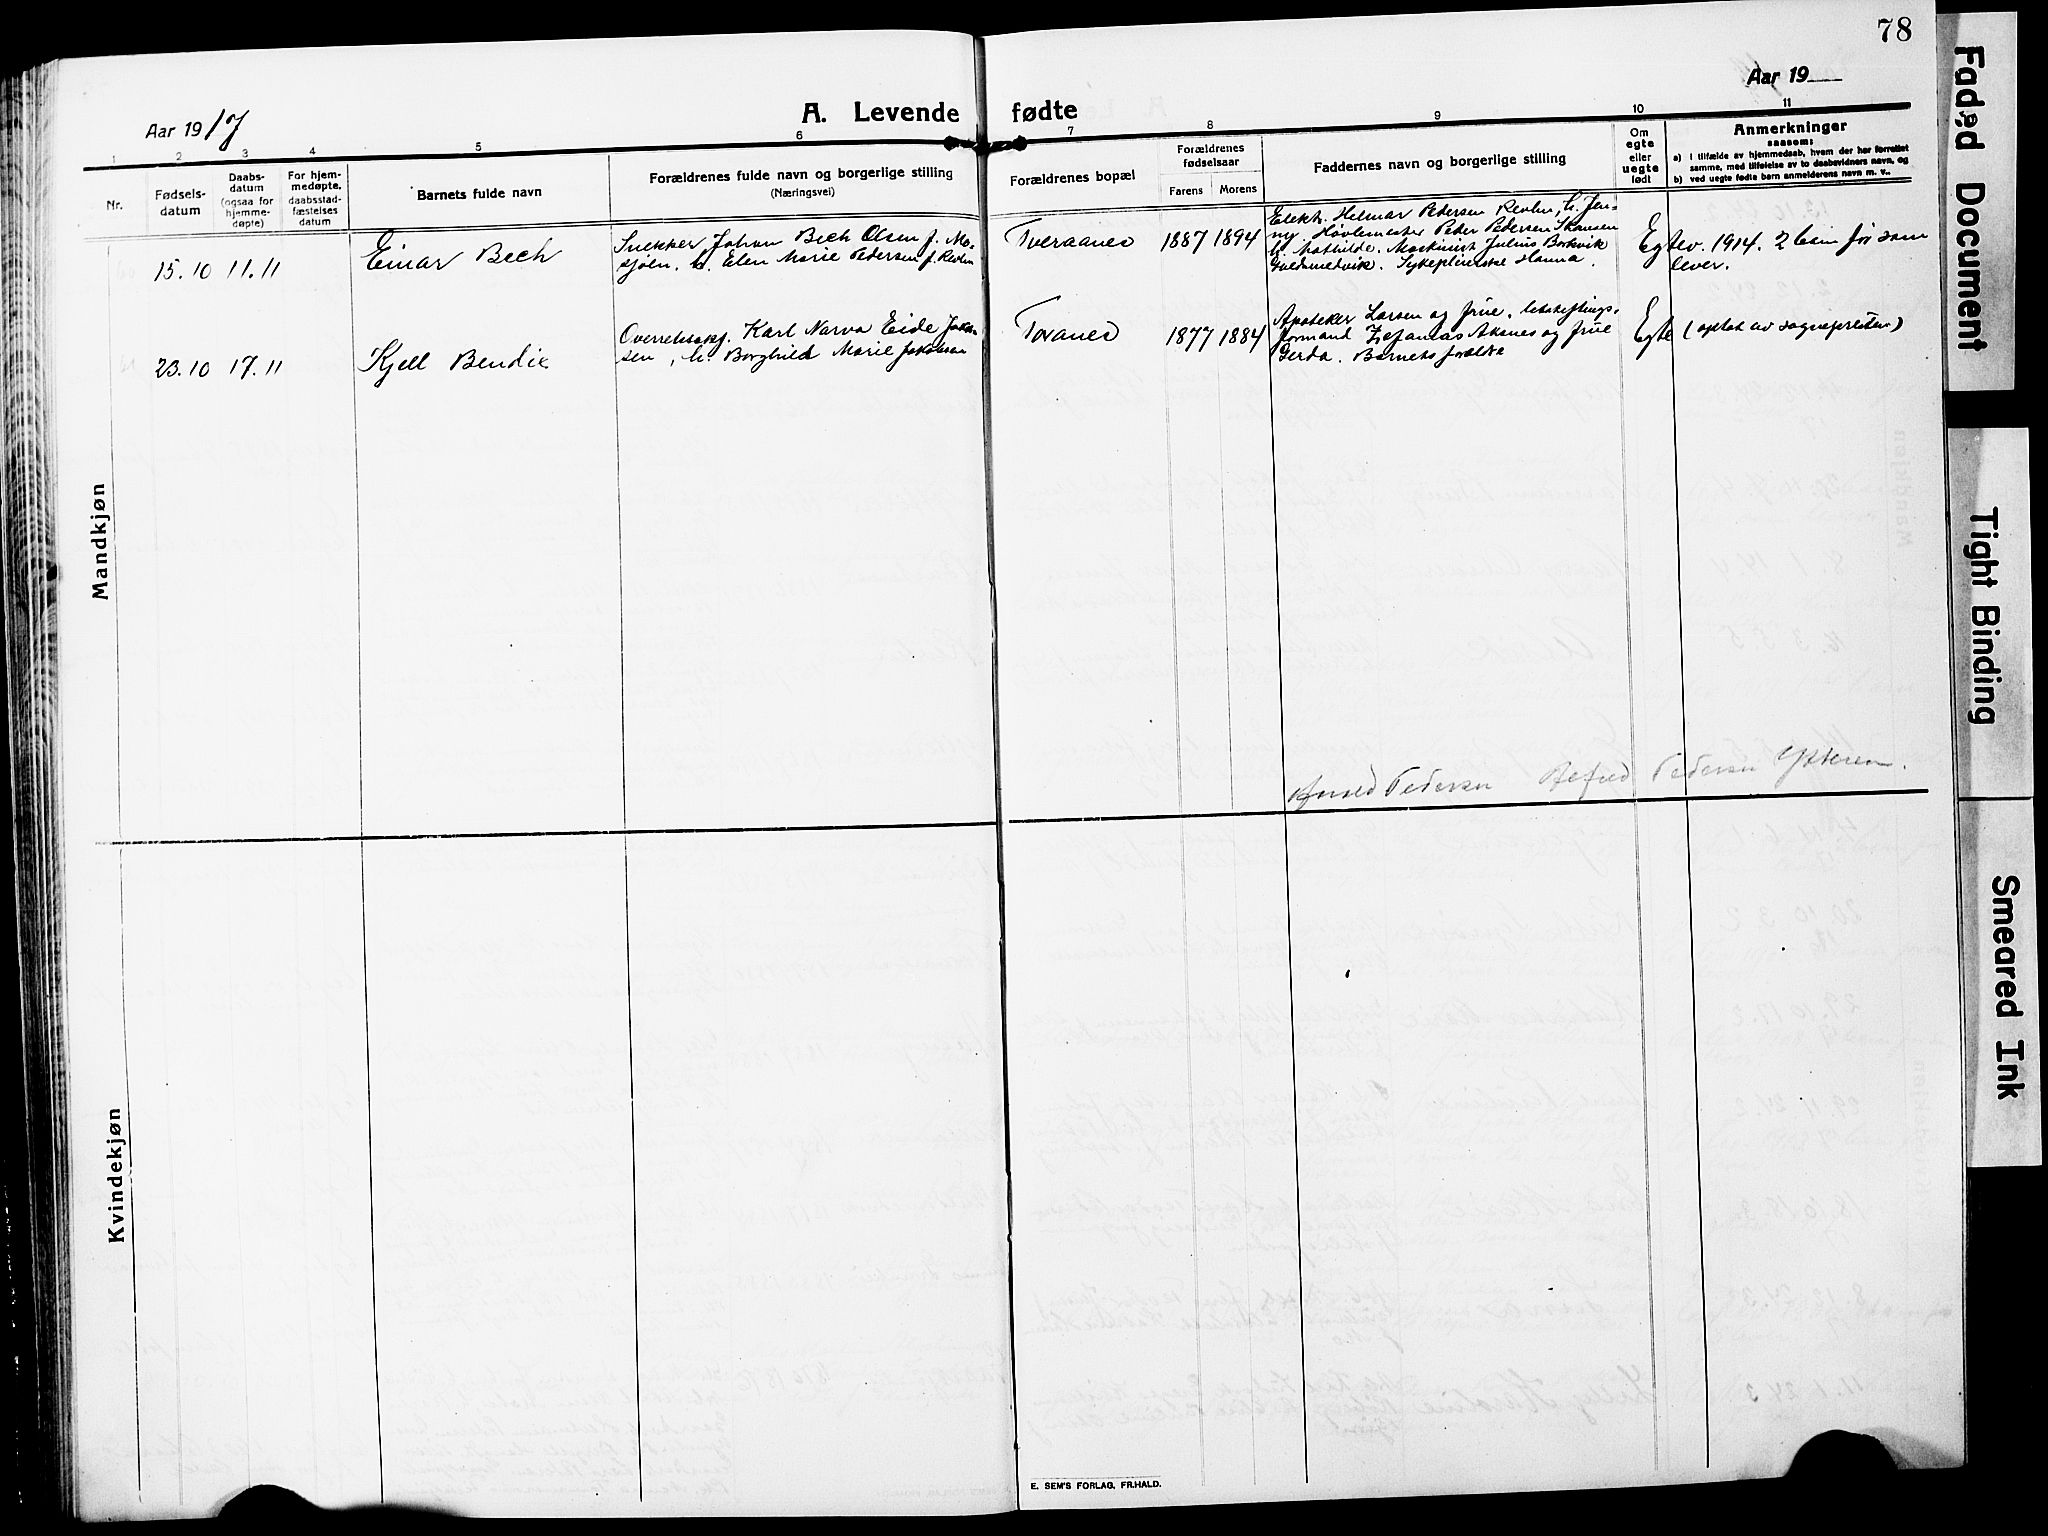 78
Aar 1917
A. Levende fødte
Aar 19
1 2 3 4 5 6 7 8 9 10 11
Nr.
Fødsels-
datum
Daabs-
datum
(ogsaa for
hjemme-
døpte)
For hjem-
medøpte,
daabsstad-
fæstelses
datum
Barnets fulde navn
Forældrenes fulde navn og borgerlige stilling
(Næringsvei)
Forældrenes bopæl
Forældrenes
fødselsaar
Farens Morens
Faddernes navn og borgerlige stilling
Om
egte
eller
uegte
født
Anmerkninger
saasom:
a) i tilfælde av hjemmedaab, hvem der har forrettet
samme, med tilføielse av to daabsvidners navn, og
b) ved uegte fødte barn anmelderens navn m. v..
Mandkjøn
15.10 11.11
Einar Bech
Snekker Johan Bech Olsen f. Mo-
sjøen, h. Elen Marie Pedersen f. Revlen
Tveraanes
1887 1894
Elektr. Helmar Pedersen Revlen, h. Jen-
ny. Høvlemester Peder Pedersen Skansen
h. Mathilde. Maskinist Julius Borkvik
Guldsmedvik. Sykepleierske Hanna.
Egte
v. 1914. 2 børn før som
lever.
23.10 17.11
Kjell Bendix
Overretssakf. Karl Narvo Eide Jakob-
sen, h. Borghild Marie Jakobsen
Toranes
1877 1884
Apoteker Larsen og frue,
formand Zefanias Aksnes og frue
Gerda. Barnets forældre
Egte
(optat av sognepresten)
Pedersen Pedersen Ytteren.
Kvindekjøn
E. SEM'S FORLAG, FR.HALD.
Faded Document
Tight Binding
Smeared Ink